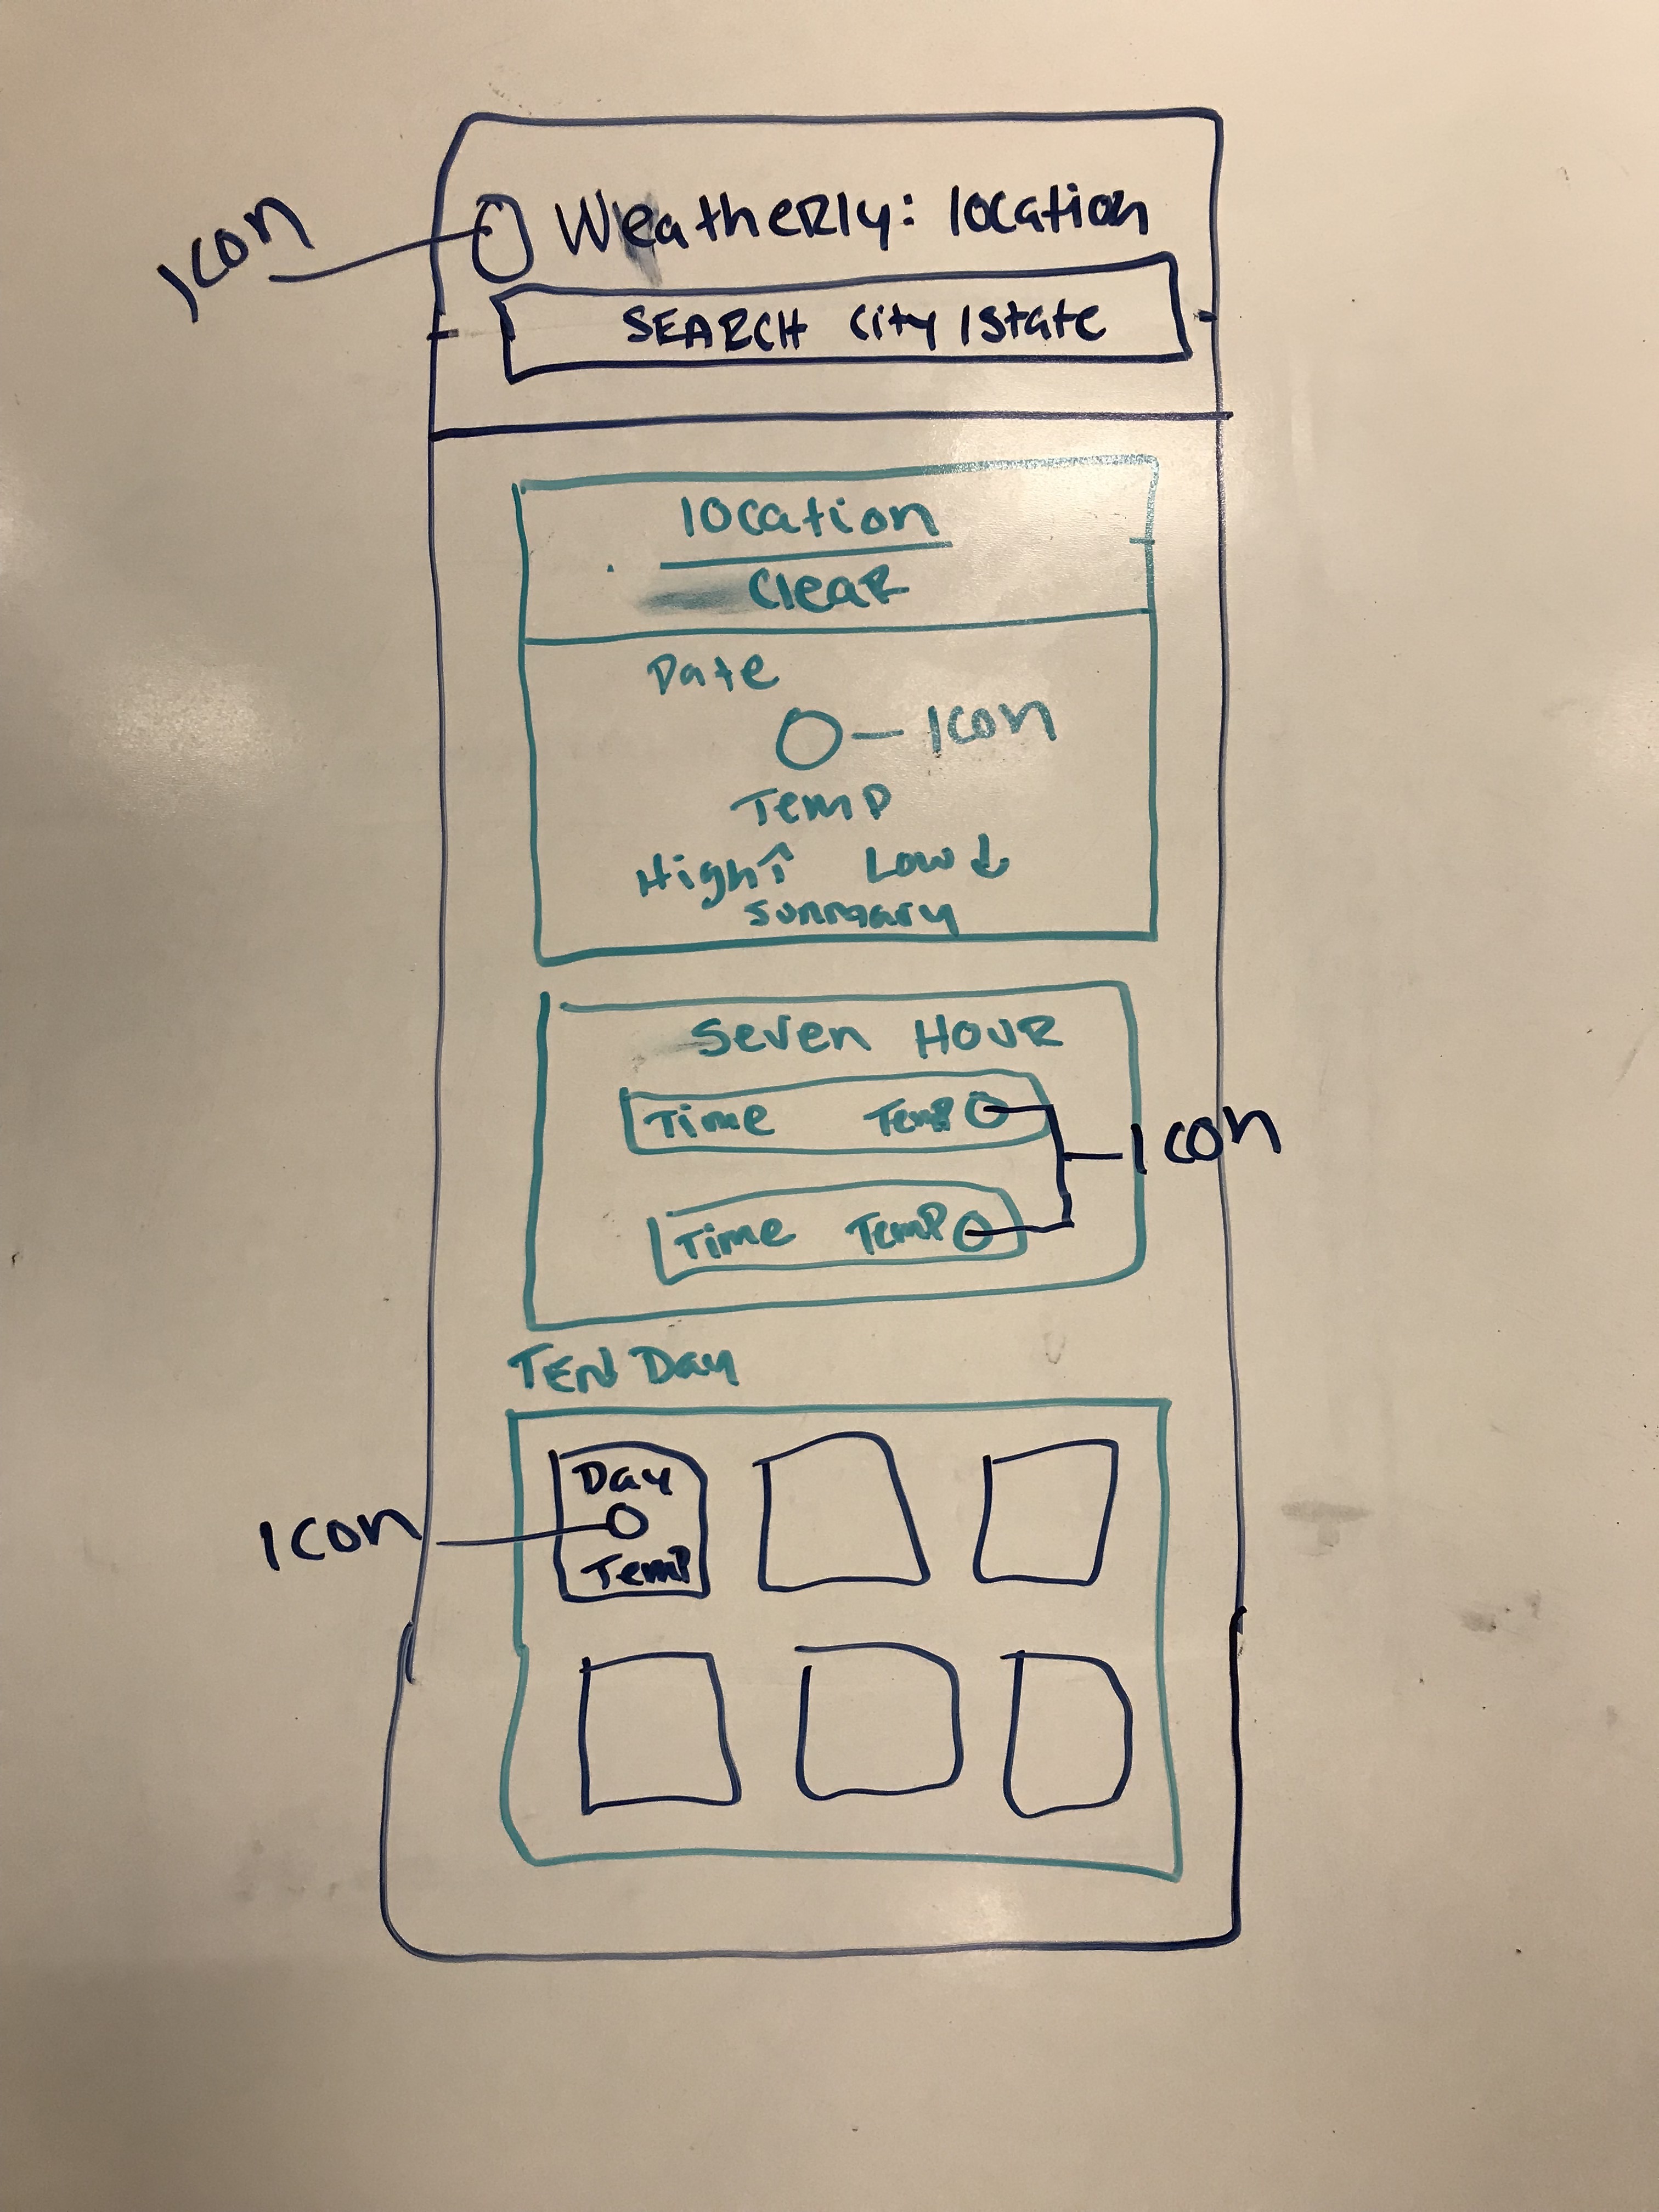 Icon
Weatherly: location
SEARCH city/state
location
Clear
Date
Icon
Temp
High↑ Low↓
Summary
Seven HOUR
Time Temp
Icon
Time Temp
TEN Day
Day
Icon
Temp